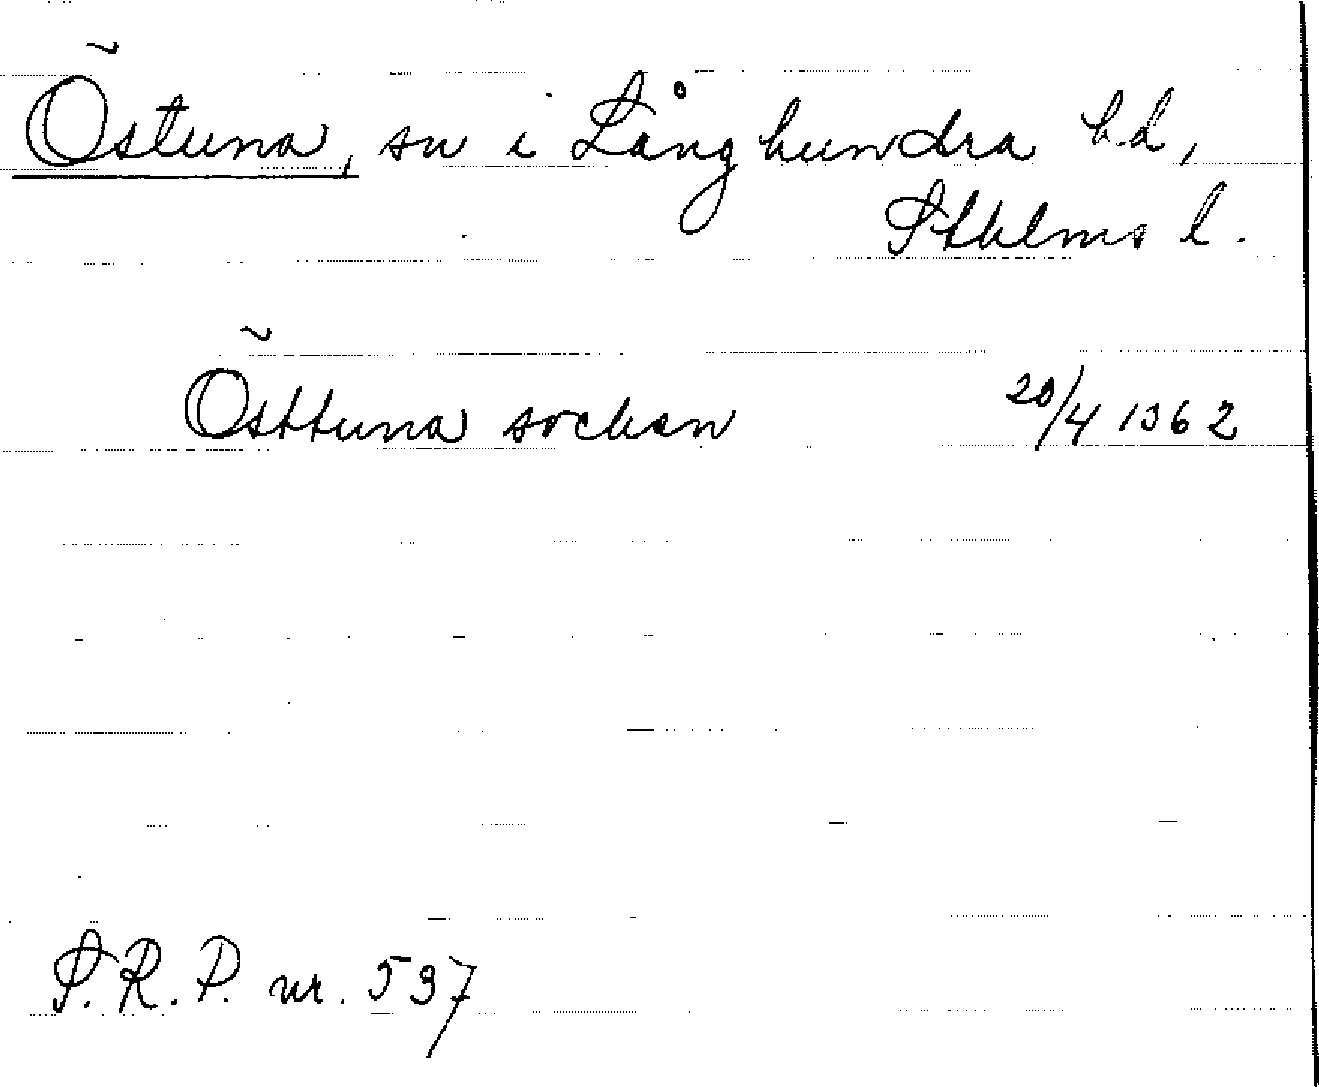 Östuna, sn i Långhundra hd,
Sthlms l.
Østtuna sochan 20/4 1362
S.R.P. nr. 537